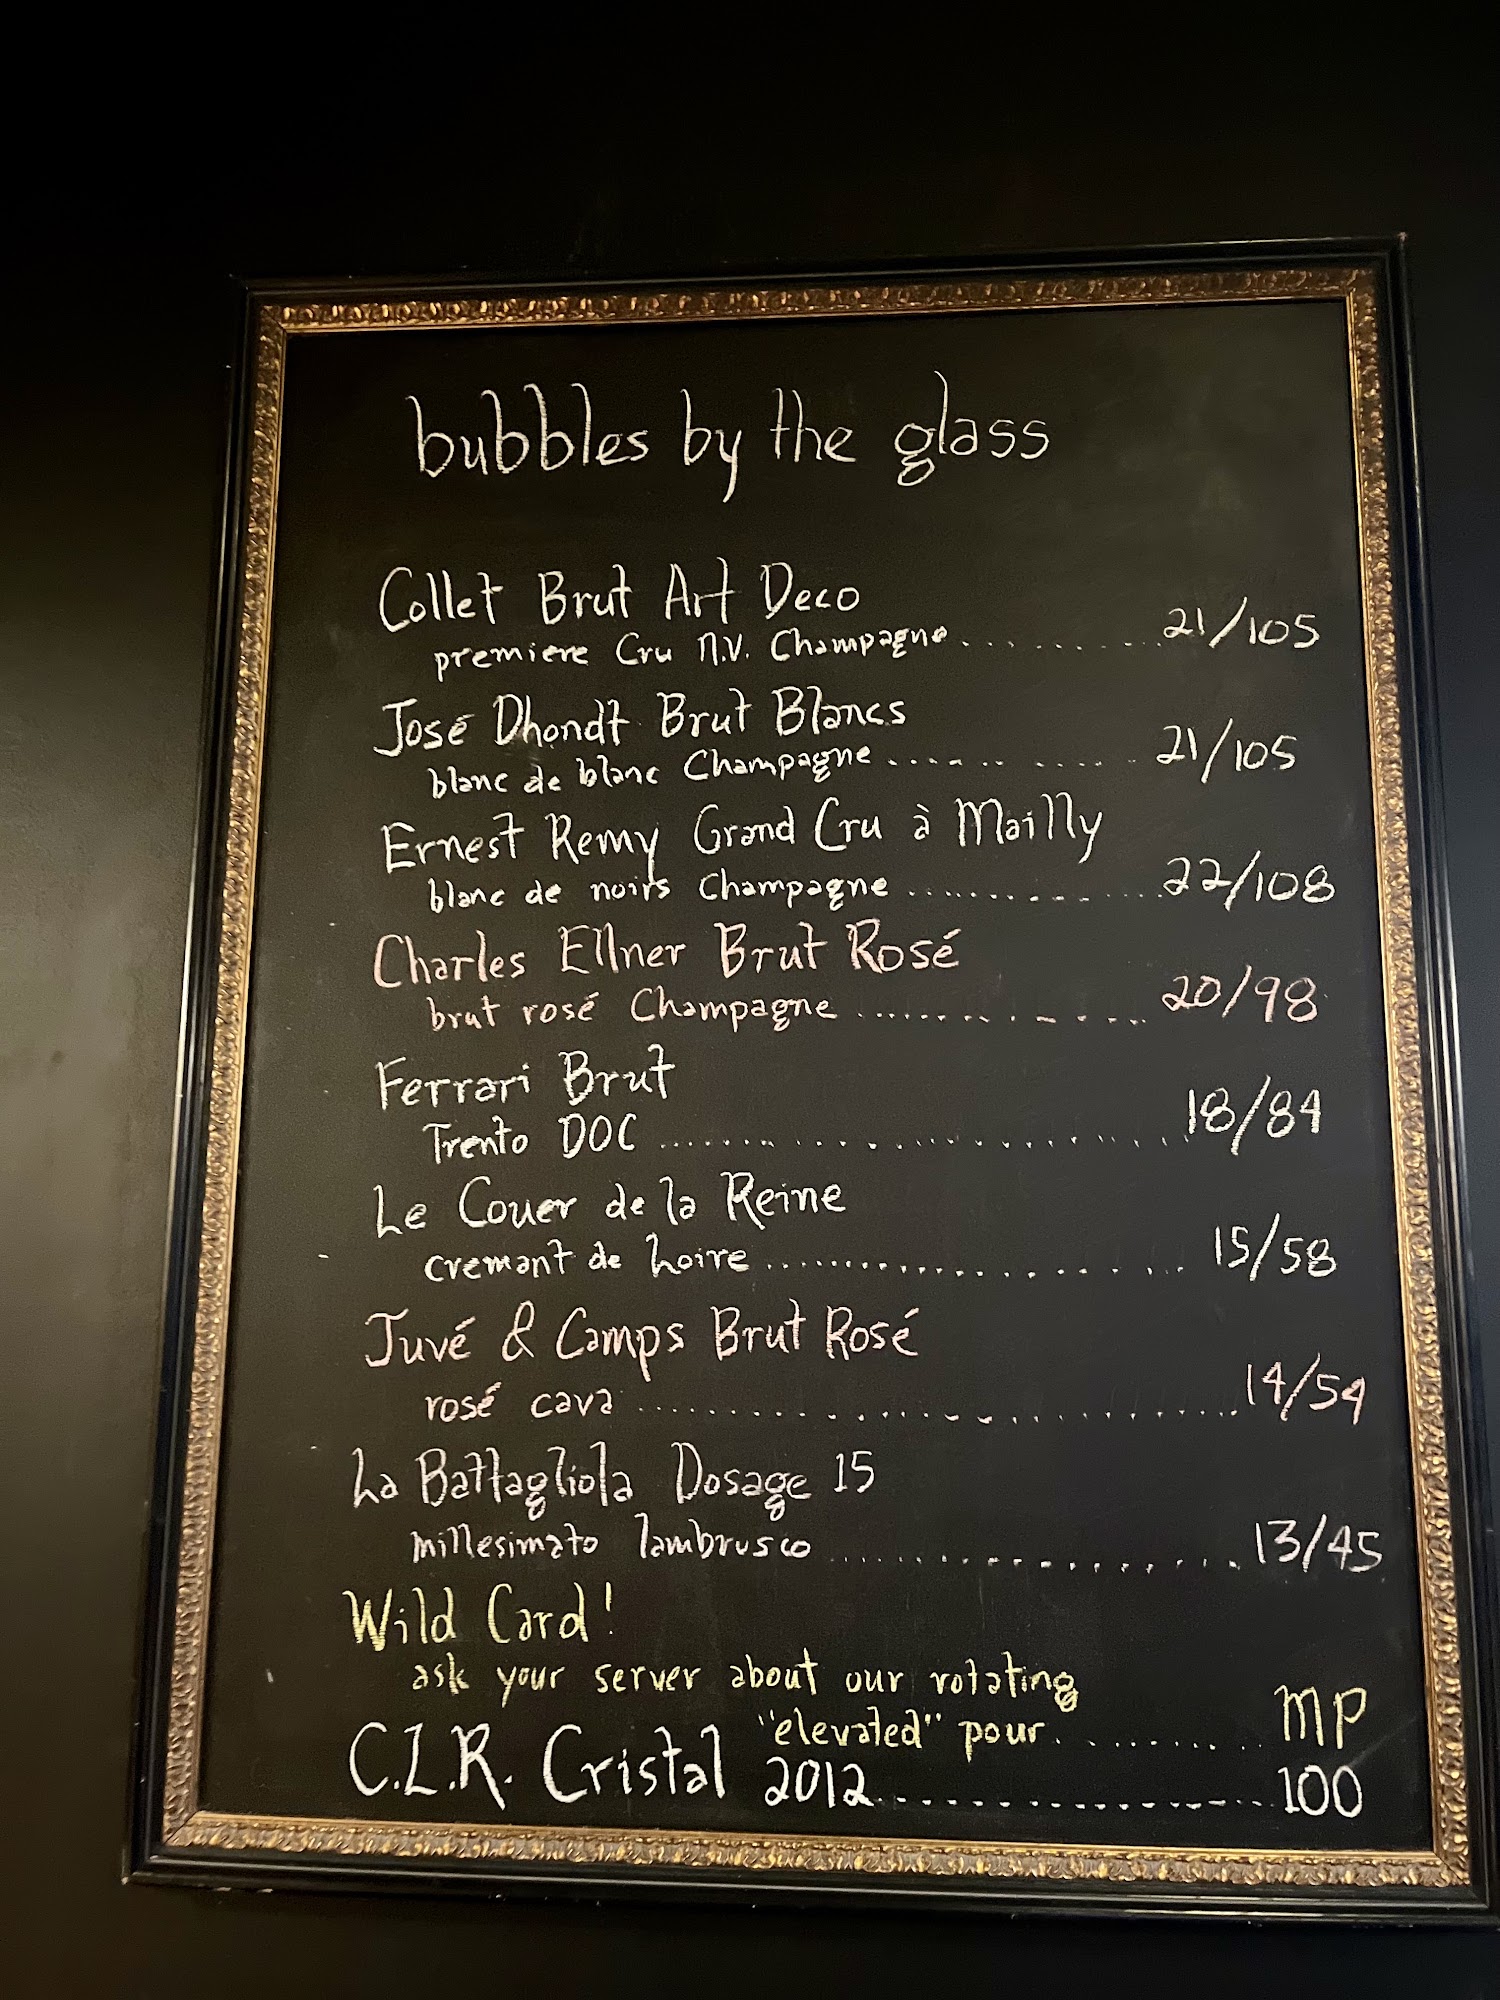 bubbles by the glass
Collet Brut Art Deco
premiere Cru N.V. Champagne.............21/105
José Dhondt Brut Blancs
blanc de blanc Champagne.............21/105
Ernest Remy Grand Cru à Mailly
blanc de noirs Champagne.............22/108
Charles Ellner Brut Rosé
brut rosé Champagne.............20/98
Ferrari Brut
Trento DOC.............18/84
Le Couer de la Reine
cremant de Loire.............15/58
Juvé & Camps Brut Rosé
rosé cava.............14/54
La Battagliola Dosage 15
millesimato lambrusco.............13/45
Wild Card!
ask your server about our rotating
"elevated" pour.............MP
C.L.R. Cristal 2012.............100